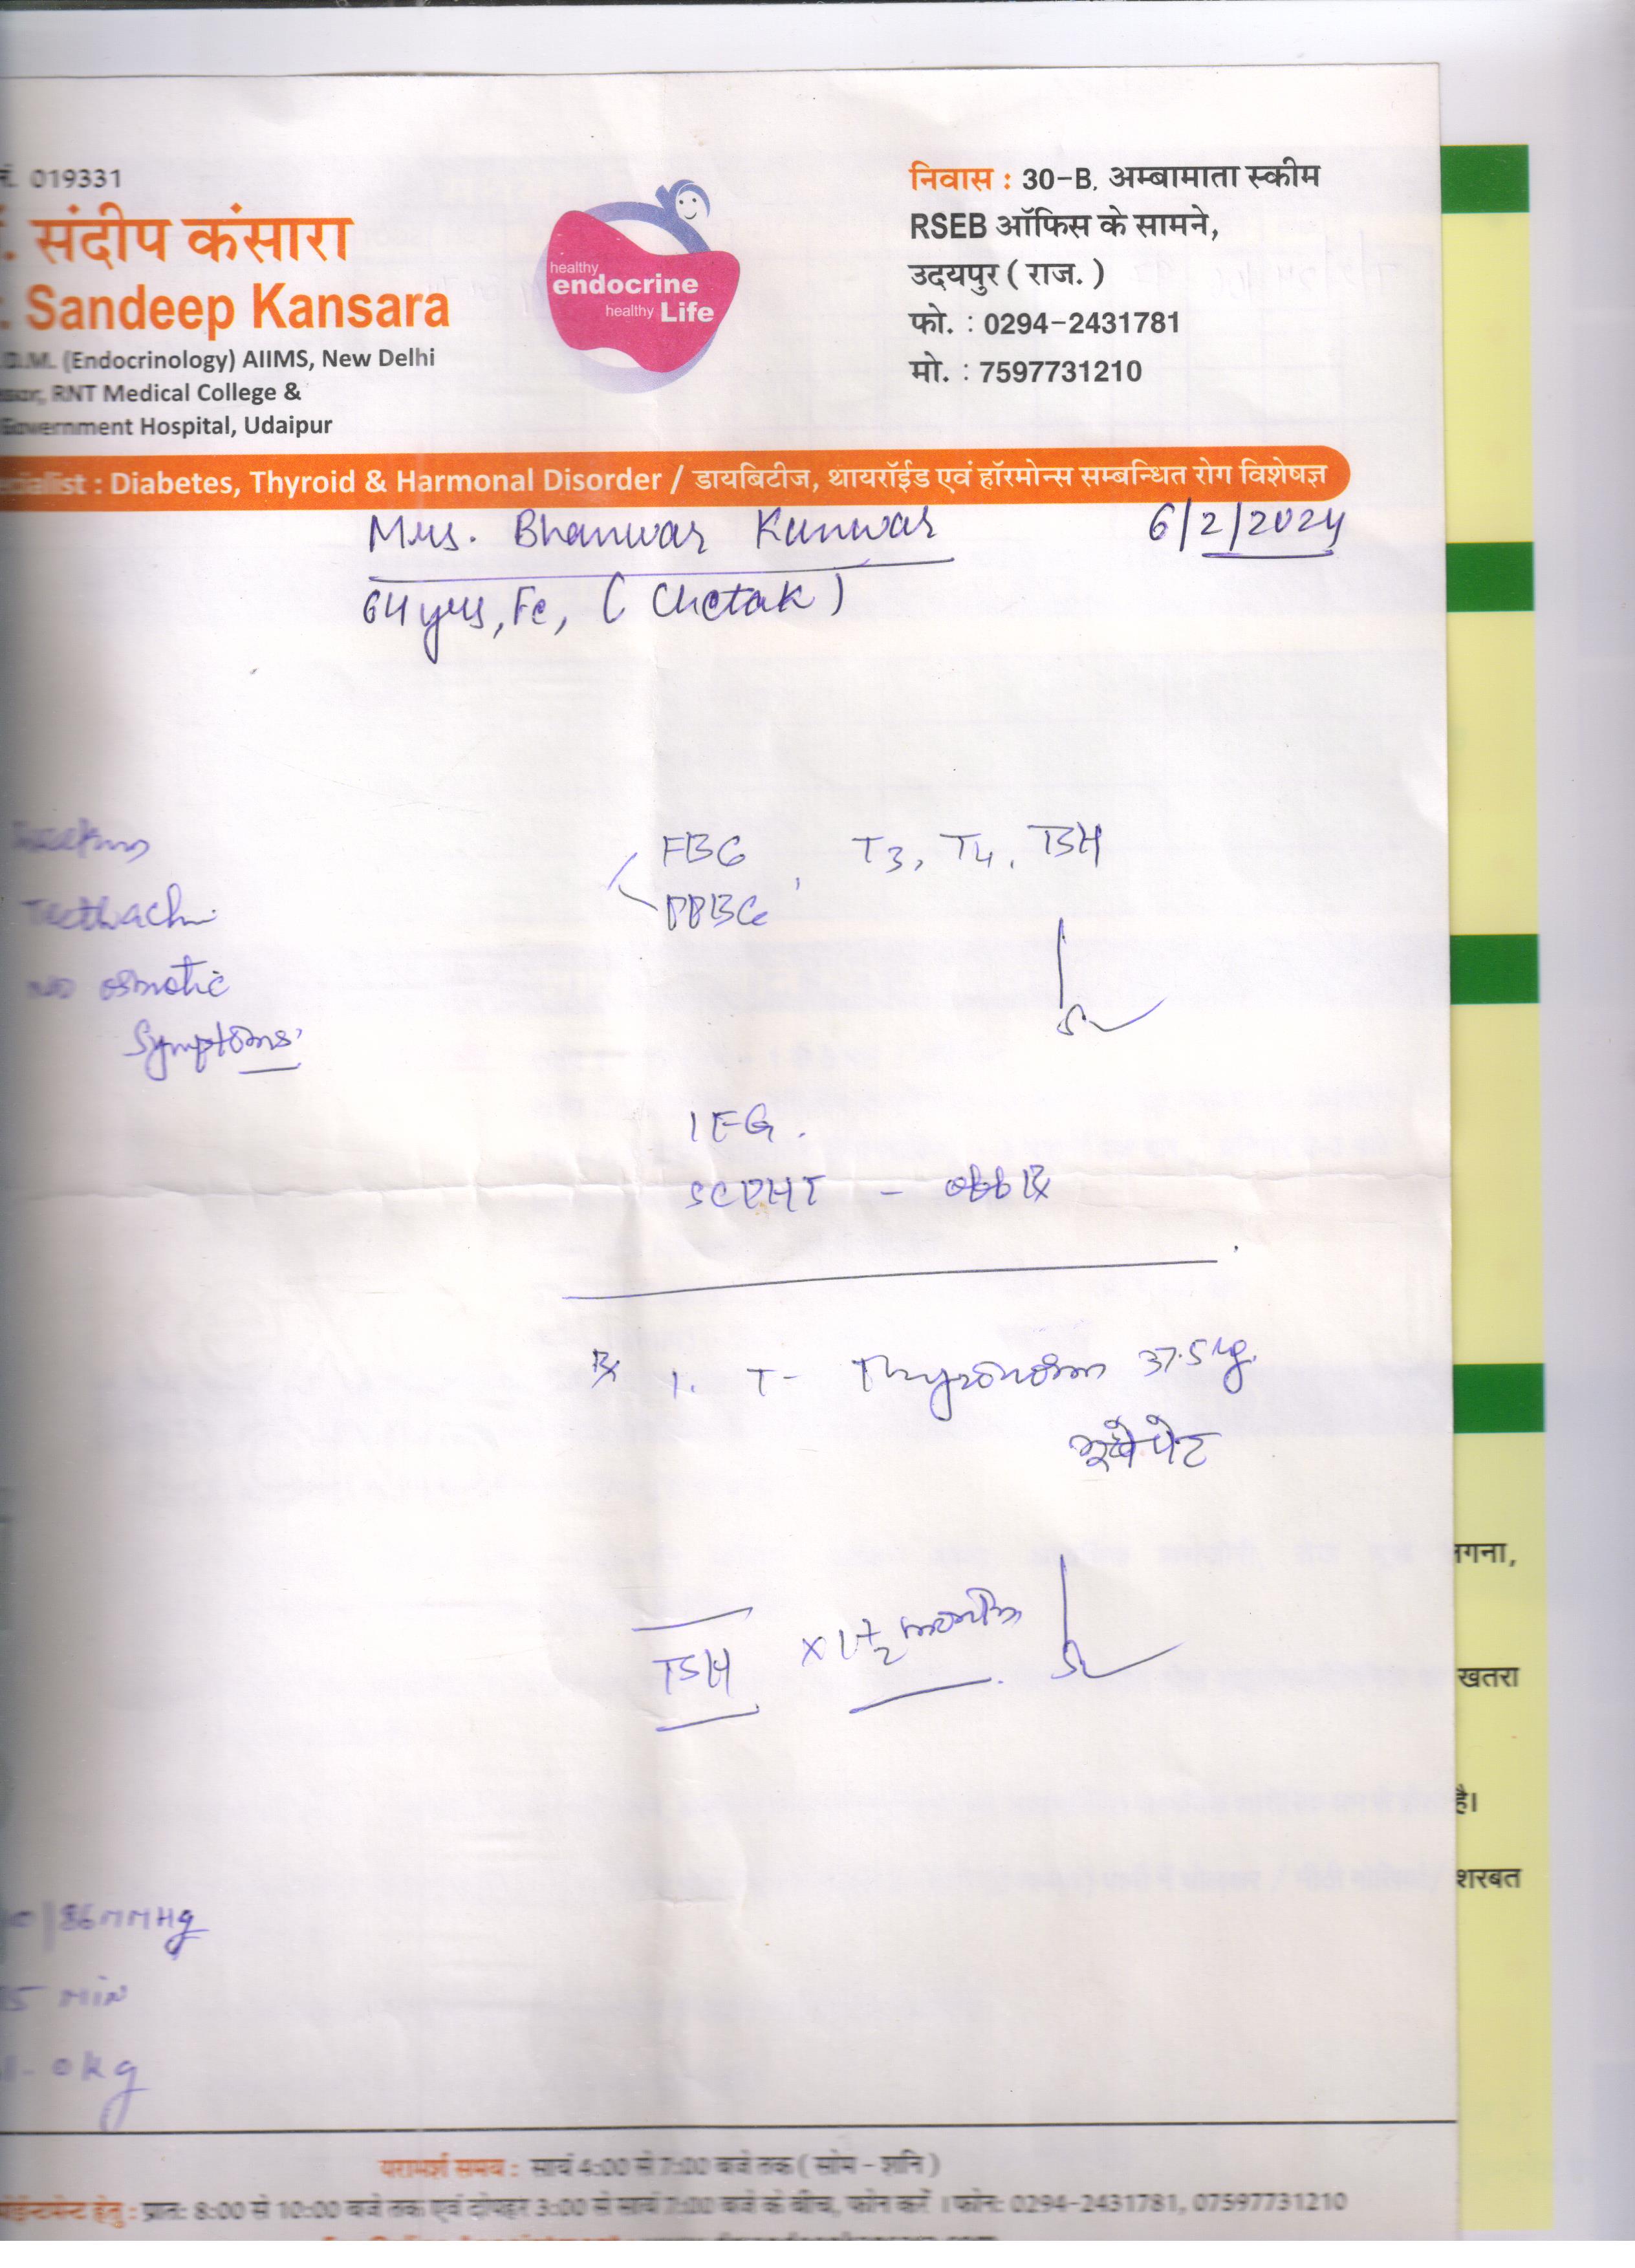 नं. 019331
. संदीप कंसारा
. Sandeep Kansara
D.M. (Endocrinology) AIIMS, New Delhi
RNT Medical College &
Government Hospital, Udaipur
healthy
endocrine
healthy Life
निवास : 30-B, अम्बामाता स्कीम
RSEB ऑफिस के सामने,
उदयपुर ( राज. )
फो. : 0294-2431781
मो. : 7597731210
cialist : Diabetes, Thyroid & Harmonal Disorder / डायबिटीज, थायरॉईड एवं हॉरमोन्स सम्बन्धित रोग विशेषज्ञ
Mrs. Bhanwar Kunwar 6/2/2024
64 yrs, Fe, ( Chetak )
FBG
PPBG , T3, T4, TSH
Teethach
No osmotic
Symptoms
IFG.
SCPHT - off Rx
Rx 1. T- Thyronorm 37.5 ug.
भूखे पेट
TSH x 1 1/2 months
/86 MMHg
5 MIN
.0kg
गना,
खतरा
है।
शरबत
परामर्श समय : सायं 4:00 से 7:00 बजे तक ( सोम - शनि )
हेतु : प्रातः 8:00 से 10:00 बजे तक एवं दोपहर 3:00 से सायं 7:00 बजे के बीच, फोन करें । फोन: 0294-2431781, 07597731210